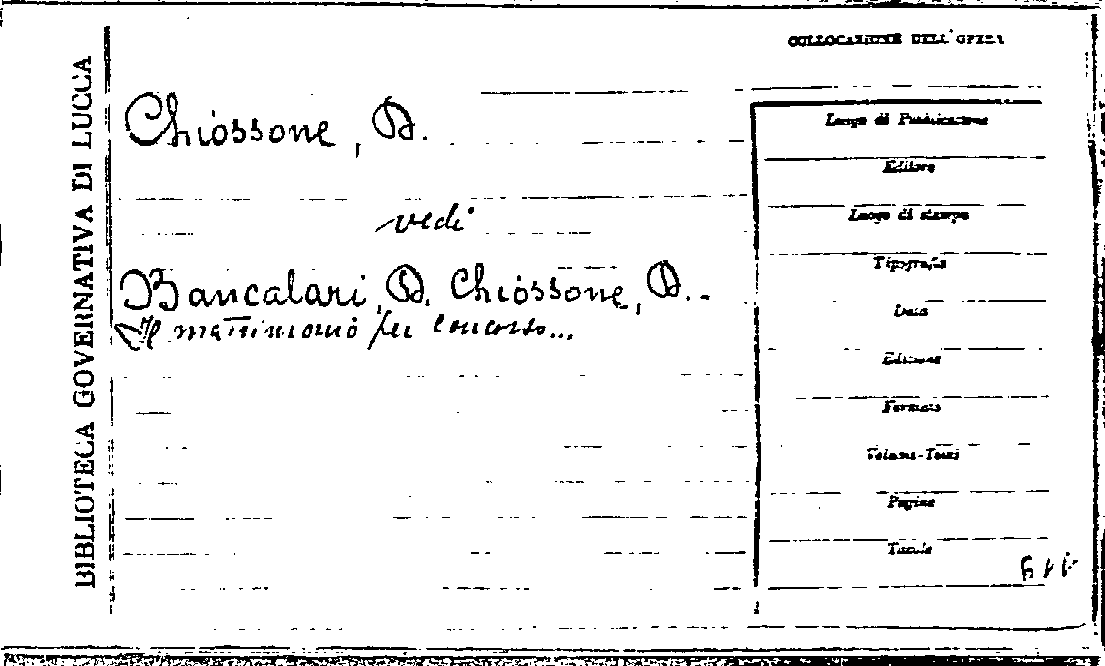 BIBLIOTECA GOVERNATIVA DI LUCCA
COLLOCAZIONE DELL'OPERA
Chiossone, D.
vedi
Bancalari, D. Chiossone, D. -
Il matrimonio per concorso...
Luogo di Pubblicazione
Editore
Luogo di stampa
Tipografia
Data
Edizione
Formato
Volume-Tomi
Pagine
Tavole